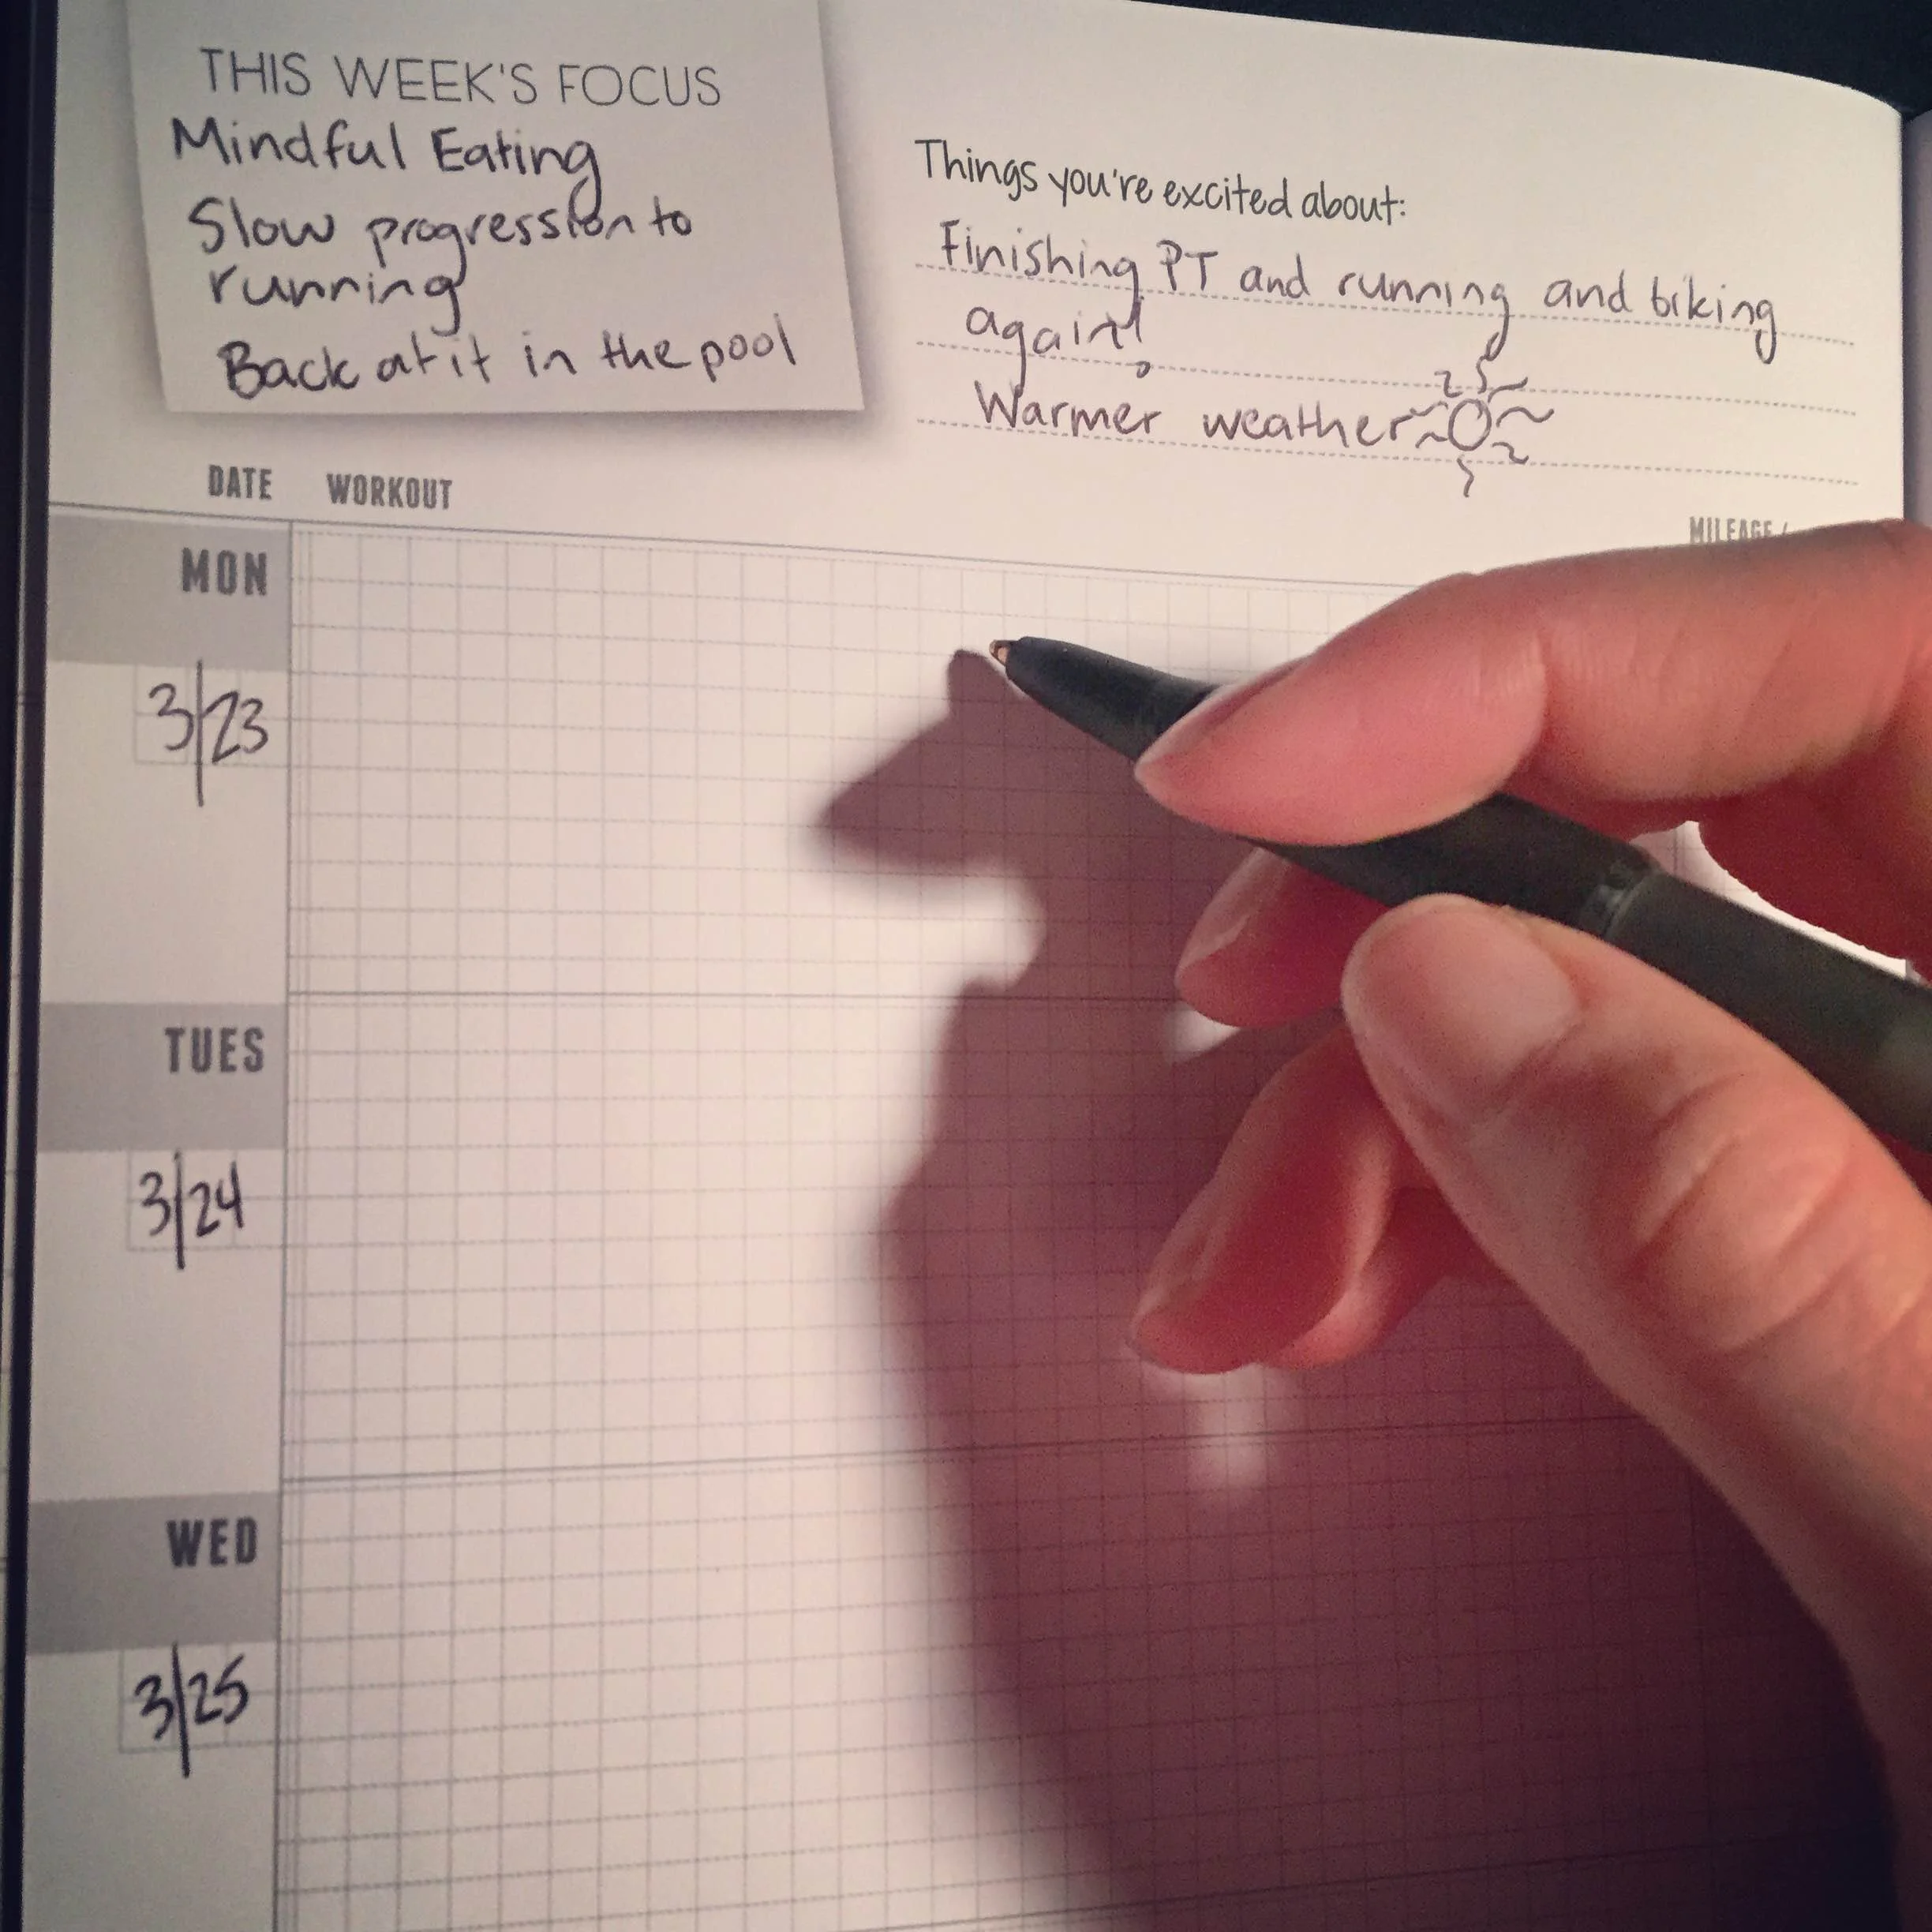 THIS WEEK'S FOCUS
Mindful Eating
Slow progression to
running
Back at it in the pool
Things you're excited about:
Finishing PT and running and biking
again!
Warmer weather
DATE WORKOUT
MILEAGE /
MON
3/23
TUES
3/24
WED
3/25